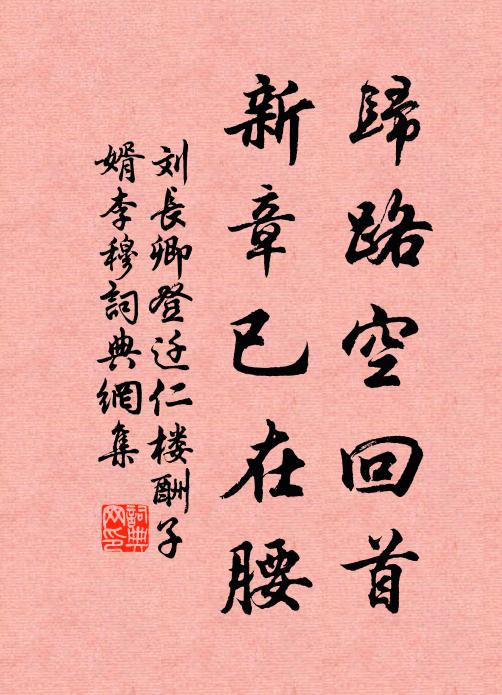 歸路空回首
新章已在腰
刘長卿登迁仁楼酬子
婿李穆詞典網集
詞典
网印